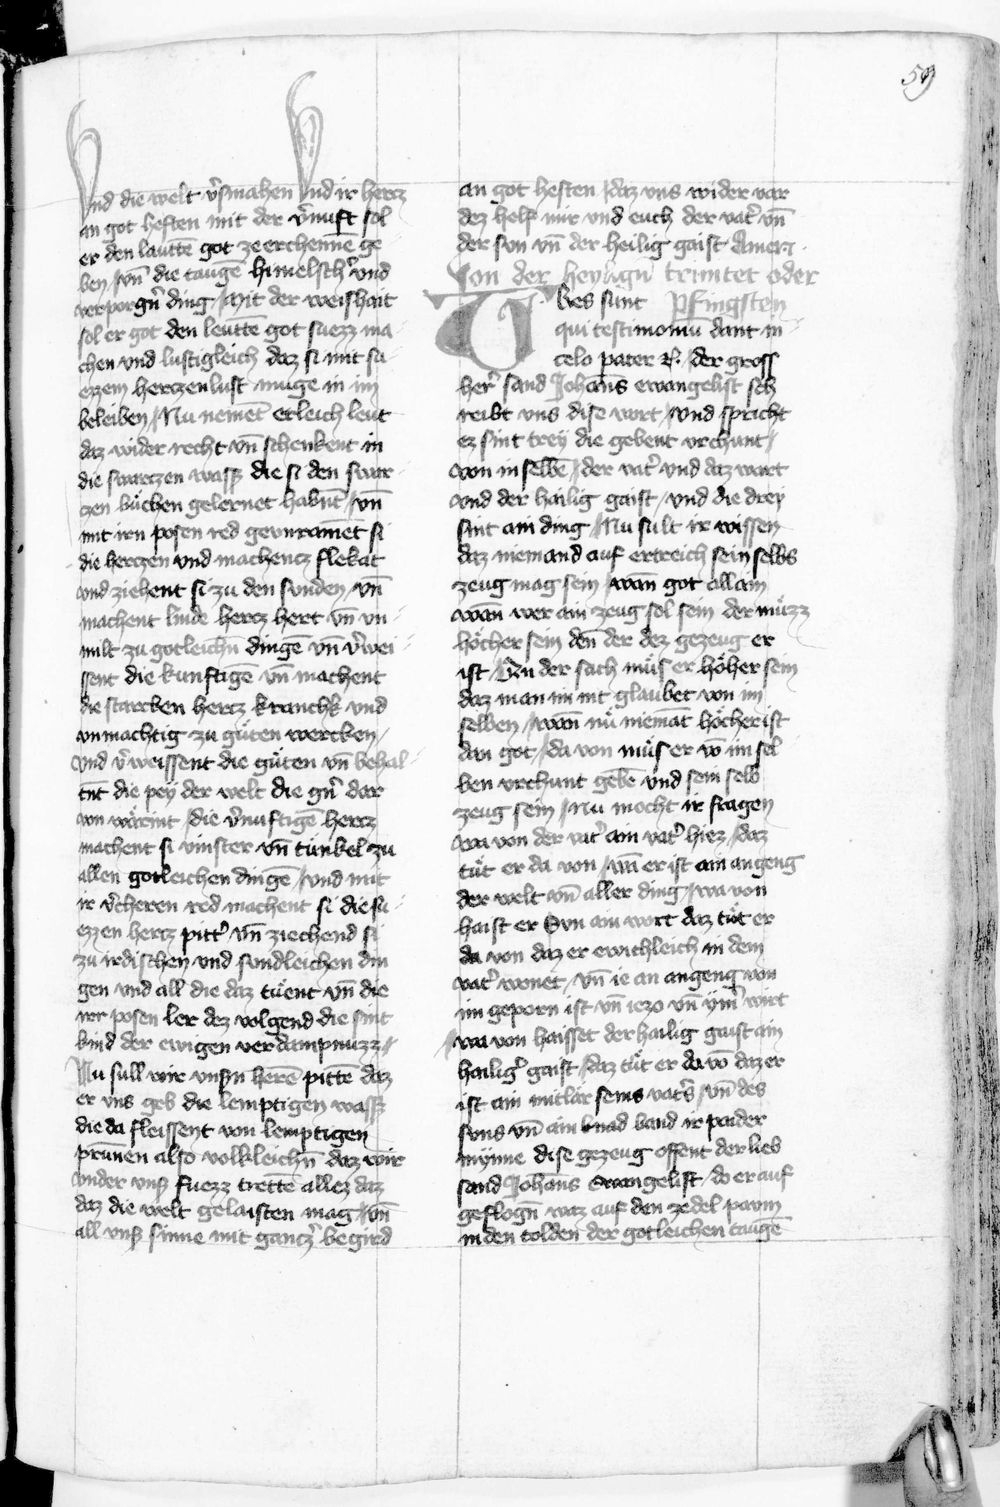 59
Vnd die welt v̉smahen Vnd ir hercz
an got heften mit der v̉nuft sol
er den lauttē got ze erchennē ge
ben / vn̄ die taugē himelsch̉ vnd
verporgn̄ ding / Mit der weishait
sol er got den leuttē got suezz ma
chen vnd lustigleich daz si mit su
ezzem herczenlust muge in im
beleiben / Nu nemēt etleich leut
daz wider recht vn̄ schenkent in
die swarczen wass̉ die si den swar
czen buͤchen gelernet habnt / vn̄
mit irn posen red si
die herczen vnd machencz flekat
vnd ziehent si zu den sunden / vn̄
machent linde hercz hert vn̄ vn
milt zu gotleichn̄ dingē vn̄ v̉wei
ssent die kunftigē vn̄ machent
die starcken hercz kranchk̉ vnd
vnmachtig zu guͤten wercken /
vnd v̉weissent die guͤten vn̄ behal
tnt die pey der welt die gn̉ dar
von waͤrint / die v̉nuftigē hercz
machent si vinster vn̄ tunkel zu
allen gotleichen dingē / vnd mit
ir v̉cheren red machent si die su
ezzen hercz pitt̉ vn̄ ziechend si
zu irdischen vnd sundleichen din
gen vnd all die daz tuͤent vn̄ die
irr posen ler dez volgend die sint
kind der ewigen verdampnuzz /
Nu sull wir vnsn̉ herē pittē daz
er vns geb die lemptigen wass̉
die da fleissent von lemptigen
prūnen also volkleichn̄ daz wir
vnder vns̉ fuezz trettē allez daz
daz die welt gelaisten mag / vn̄
all vns̉ sinne mit gancz̉ begird
an got heften / daz vns wider var
dez helf mir vnd euch der vat̉ vn̄
der sun vn̄ der heilig gaist Amen .
Von der heylign̄ trinitet oder
pfingsten
Tres sunt
qui testimoniū dant in
celo pater ⁊c̄ / der gross
her̉ sand Johans̄ ewangelist sch
reibt vns dise wort / vnd spricht
ez sint trey die gebent vrchunt /
von in selbē / der vat̉ vnd daz wort
vnd der hailig gaist / vnd die drey
sint ain ding / Nu sult ir wissen
daz niemand auf ertreich sein selbs
zeug mag sein / wan̄ got allain
wan̄ wer ain zeug sol sein der muͤzz
hoͤcher sein den̄ der dez gezeug er
ist / Von der sach muͤs er hoͤher sein
daz man im nit glaubet von im
selben / wan̄ nuͤ niemāt hoͤcher ist
dan got / da von muͤs er vō im sel
ben vrchunt gebē vnd sein selb
zeug sein / Nu mocht ir fragen
wa von der vat̉ ain vat̉ hiez / daz
tuͤt er da von / wā er ist ain angeng
der welt vn̄ aller ding / wa von
haist er Sun ain wort daz tuͤt er
da von daz er ewichleich in dem
vat̉ wonet / vn̄ ie an angeng von
im geporn ist vn̄ iezo vn̄ ym̉ wirt
/ wa von haisset der hailig gaist ain
hailig̉ gaist / daz tuͤt er da vō daz er
ist ain mitlaͤr seins vat̉s / vn̄ des
suns vn̄ ain band ir paider
mynne dise gezeug offent der lieb
sand Johans̄ ewangelist / do er auf
geflogn̄ waz auf den zedel pawm
in den tolden der gotleichen taugē